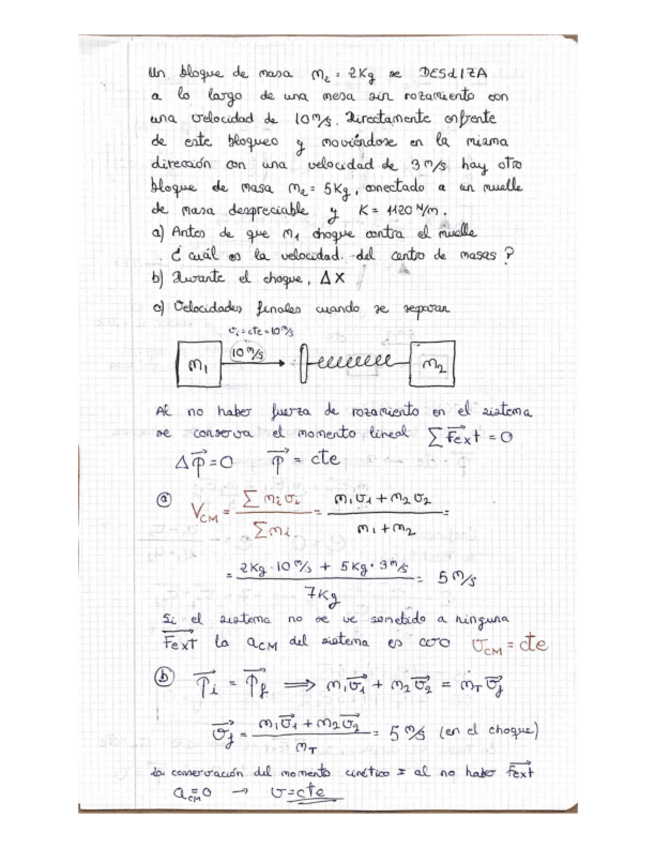 Un bloque de masa m₂ = 2Kg se DESdIZA
a lo largo de una mesa sin rozamiento con
una velocidad de 10 m/s. Directamente enfrente
de este bloqueo y moviéndose en la misma
dirección con una velocidad de 3 m/s hay otro
bloque de masa m₂ = 5Kg, conectado a un muelle
de masa despreciable y K = 1120 N/m.
a) Antes de que m₁ choque contra el muelle
¿ cuál es la velocidad del centro de masas ?
b) Durante el choque, ΔX
c) Velocidades finales cuando se separan
v₁ = cte = 10 m/s
m₁ 10 m/s m₂
Al no haber fuerza de rozamiento en el sistema
se conserva el momento lineal ∑ F⃗ext = 0
Δp⃗ = 0 p⃗ = cte
ⓐ V_CM = ∑ mᵢ vᵢ / ∑ mᵢ = (m₁v₁ + m₂v₂) / (m₁ + m₂) =
= (2Kg · 10 m/s + 5Kg · 3 m/s) / 7Kg = 5 m/s
Si el sistema no se ve sometido a ninguna
F⃗ext la a_CM del sistema es cero v_CM = cte
ⓑ p⃗i = p⃗f ⟹ m₁v⃗₁ + m₂v⃗₂ = m_T v⃗f
v⃗f = (m₁v⃗₁ + m₂v⃗₂) / m_T = 5 m/s (en el choque)
La conservación del momento cinético = al no haber F⃗ext
a_CM = 0 → v = cte